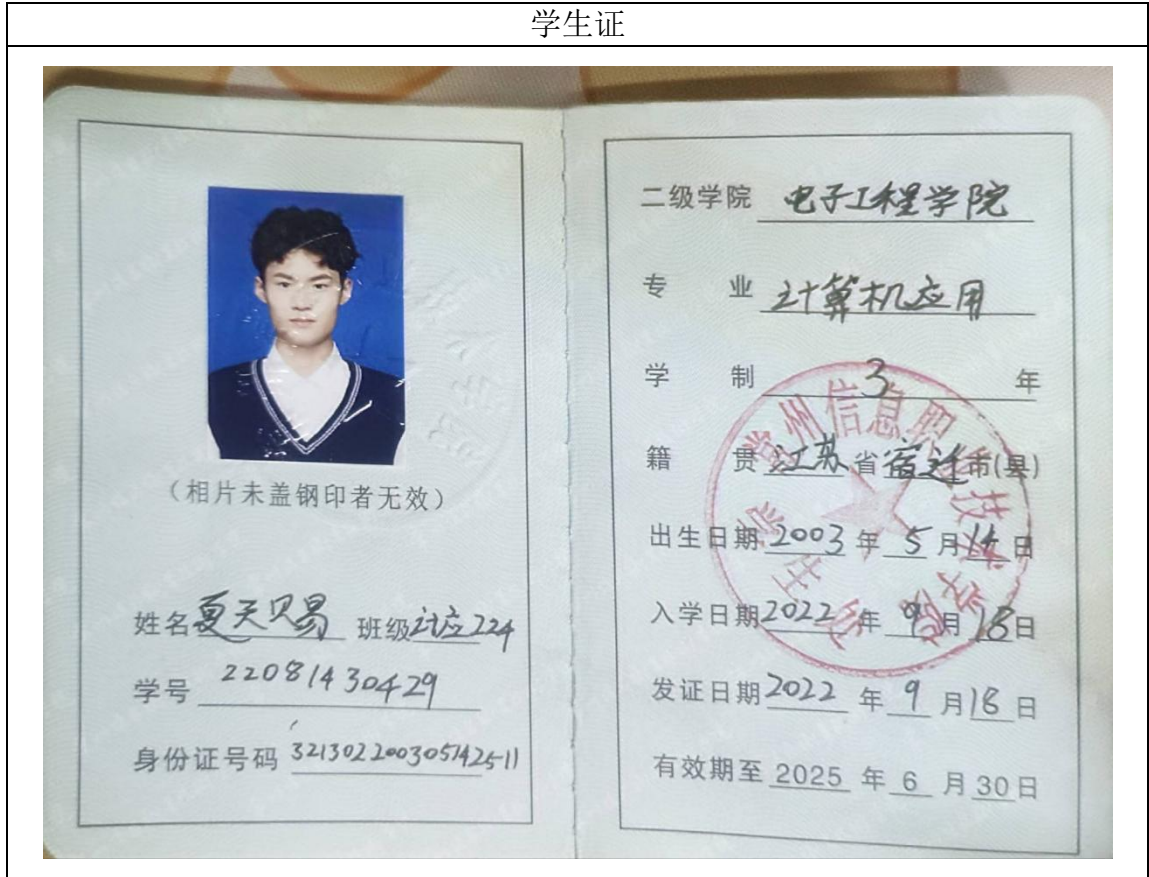 学生证
(相片未盖钢印者无效)
姓名 夏天贝易 班级 计应224
学号 22081430429
身份证号码 321302200305142511
二级学院 电子工程学院
专 业 计算机应用
学 制 3 年
籍 贯 江苏 省 宿迁 市(县)
出生日期 2003 年 5 月 14 日
入学日期 2022 年 9 月 18 日
发证日期 2022 年 9 月 18 日
有效期至 2025 年 6 月 30 日
常州信息职业技术学院
学生证